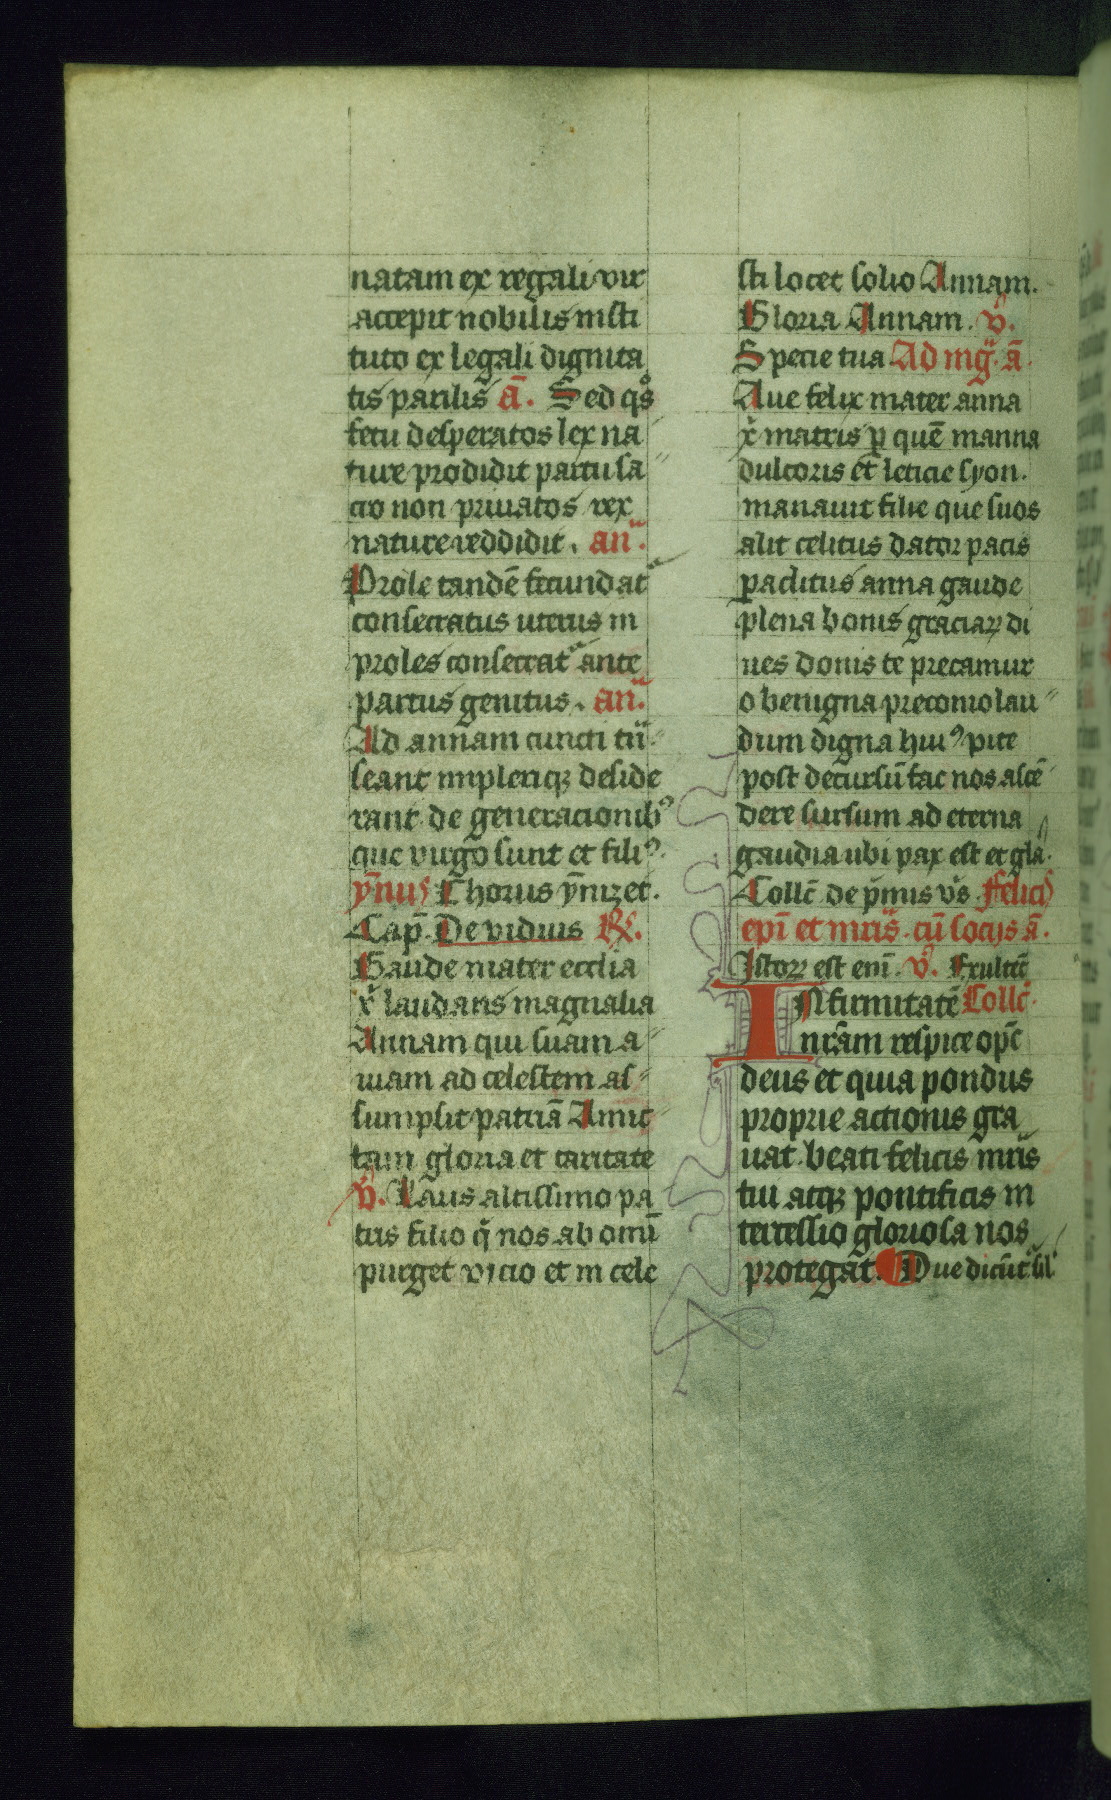 natam ex regali vir
accepit nobilis insti
tuto ex legali dignita
tis parilis ā. Sed qͦs
fetu desperatos lex na
ture prodidit partu sa
cro non priuatos rex
nature reddidit. an̄.
Prole tandē fecundat᷑
consecratus uterus in
proles consecrat᷑ ante
partus genitus. an̄.
Ad annam cuncti
seant implerıqꝫ deside
rant de generacionibꝰ
que virgo sunt et filiꝰ.
ȳnus Chorus ȳnizet.
Cap̄. De viduis ℟.
Gaude mater ecclia
xͥ laudans magnalia
Annam qui suam a
uiam ad celestem as
sumpsit patriā Amic
tam gloria et caritate
℣. Laus altissimo pa
tris filio qͥ nos ab omī
purget vicio et in cele
sti locet solio Annam.
Gloria Annam. ℣.
Specie tua Ad mḡ. ā.
Aue felix mater anna
xͥ matris ꝑ quē manna
dulcoris et leticie syon.
manauit filie que suos
alit celitus dator pacis
ꝑaclitus anna gaude
plena bonis graciaꝝ di
ues donis te precamur
o benigna preconio lau
dum digna huiꝰ vite
post decursū fac nos ascē
dere sursum ad eterna
gaudia ubi pax est et gl̄a.
Coll̄c de p̄mis v̄s. Felicis
ep̄i et mr̄is. cū socijs ā.
Istoꝝ est eni. ℣. Exultēt
INfirmitatē Coll̄c.
nr̄am respice op̄c
deus et quia pondus
proprie actionis gra
uat. beati felicis mr̄is
tui atqꝫ pontificis in
tercessio gloriosa nos
protegat. Due dicūt᷑ sil̄